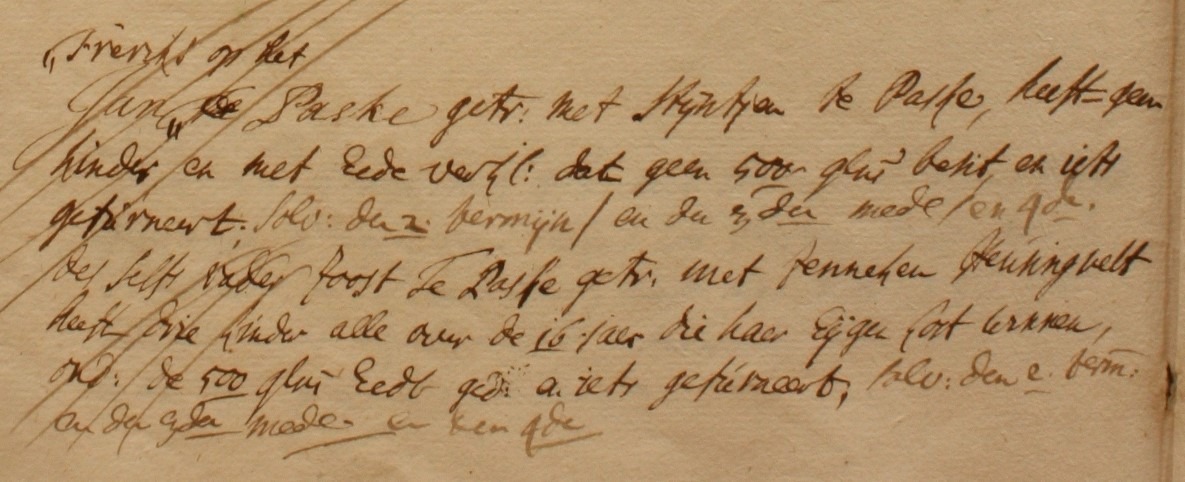 „Frerihs op het
Jan „te Paske getr: met Stijntjen te Paske, heeft geen
kinder en met Eede verkl: dat geen 500 glns besit, en iets
gefurneert. Solv: den 2. termijn / en den 3den mede / en 4de.
des selfs vader Joost Te Paske getr. met Jenneken Heusinqvelt
heeft drie kinder alle over de 16 jaer die haer Eijgen cost winnen,
op de 500 glns Eedt ged: en iets gefurneert, solv: den 2. term:
en den 3den mede en den 4de